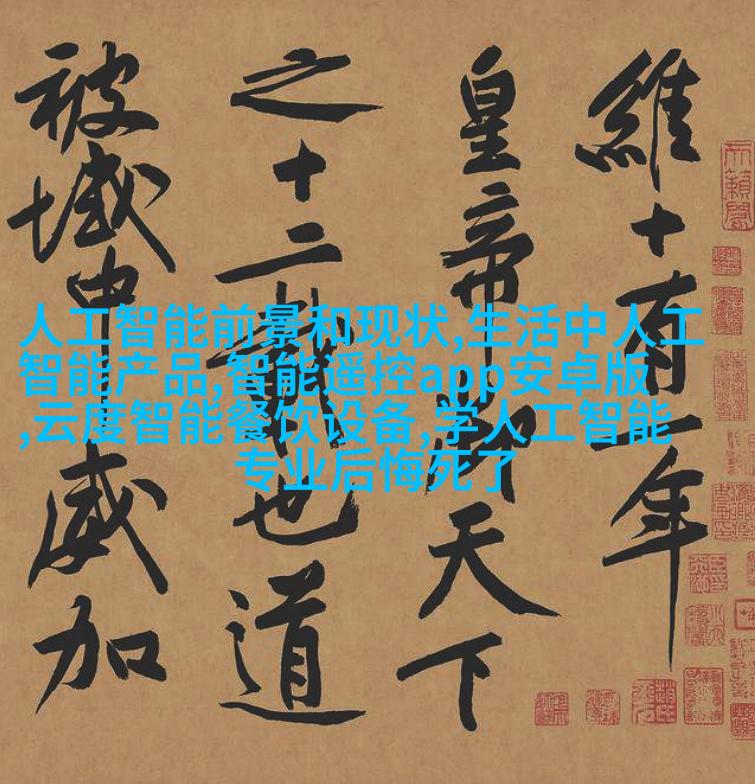 維十有一年
皇帝御天下
之十二載也道
被域中威加
人工智能前景和现状,生活中人工
智能产品,智能遥控app安卓版
,云度智能餐饮设备,学人工智能
专业后悔死了